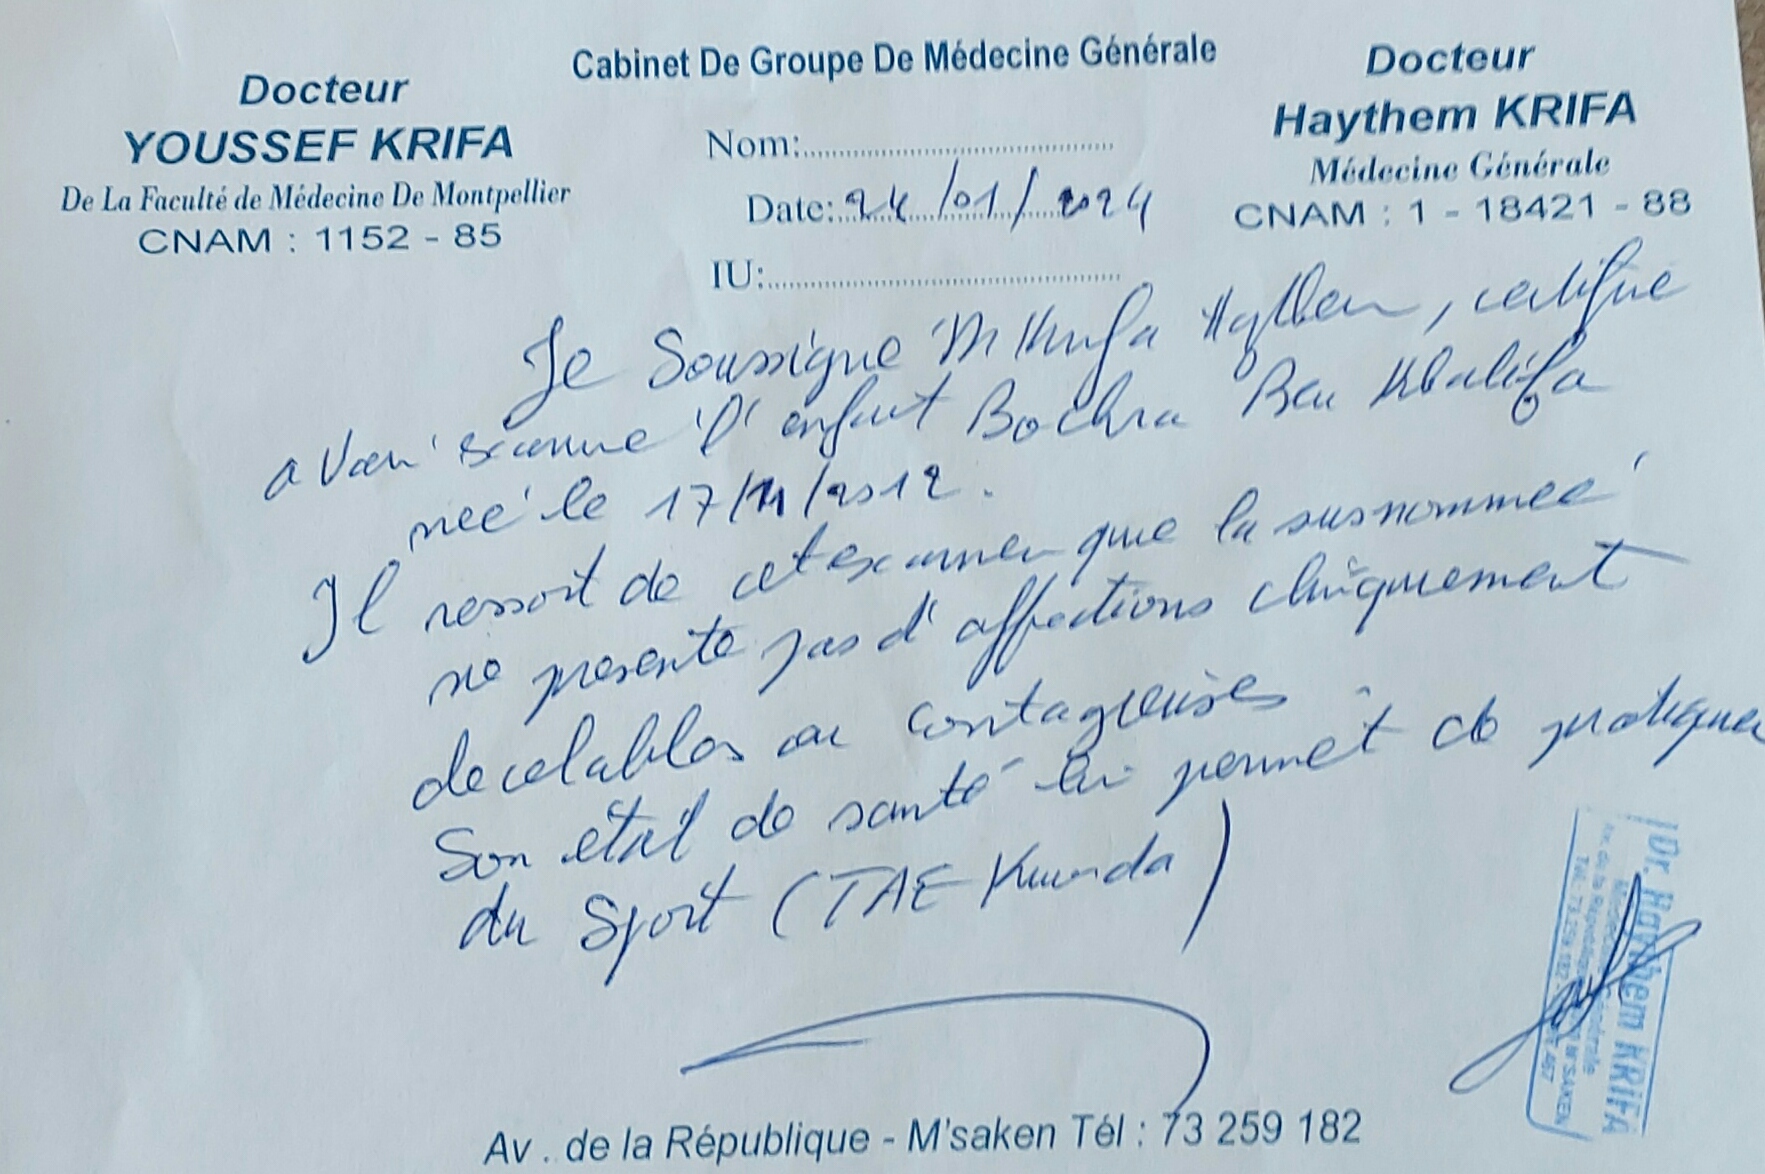 Cabinet De Groupe De Médecine Générale
Docteur
YOUSSEF KRIFA
De La Faculté de Médecine De Montpellier
CNAM : 1152 - 85
Nom:
Date: 24/01/2024
IU:
Docteur
Haythem KRIFA
Médecine Générale
CNAM : 1 - 18421 - 88
Je Soussigne Krifa Haythem, certifie
avoir examine l'enfant Bochra Ben Khalifa
neé le 17/11/2012.
Il ressort de cet examen que la susnommeé
ne presente pas d'affections cliniquement
decelables ou contagieuses
Son état de santé lui permet de pratiquer
du Sport (TAE Kwnda)
Dr. Haythem KRIFA
Médecine Générale
Av. de la République M'SAKEN
Tél : 73.259.182
Av . de la République - M'saken Tél : 73 259 182